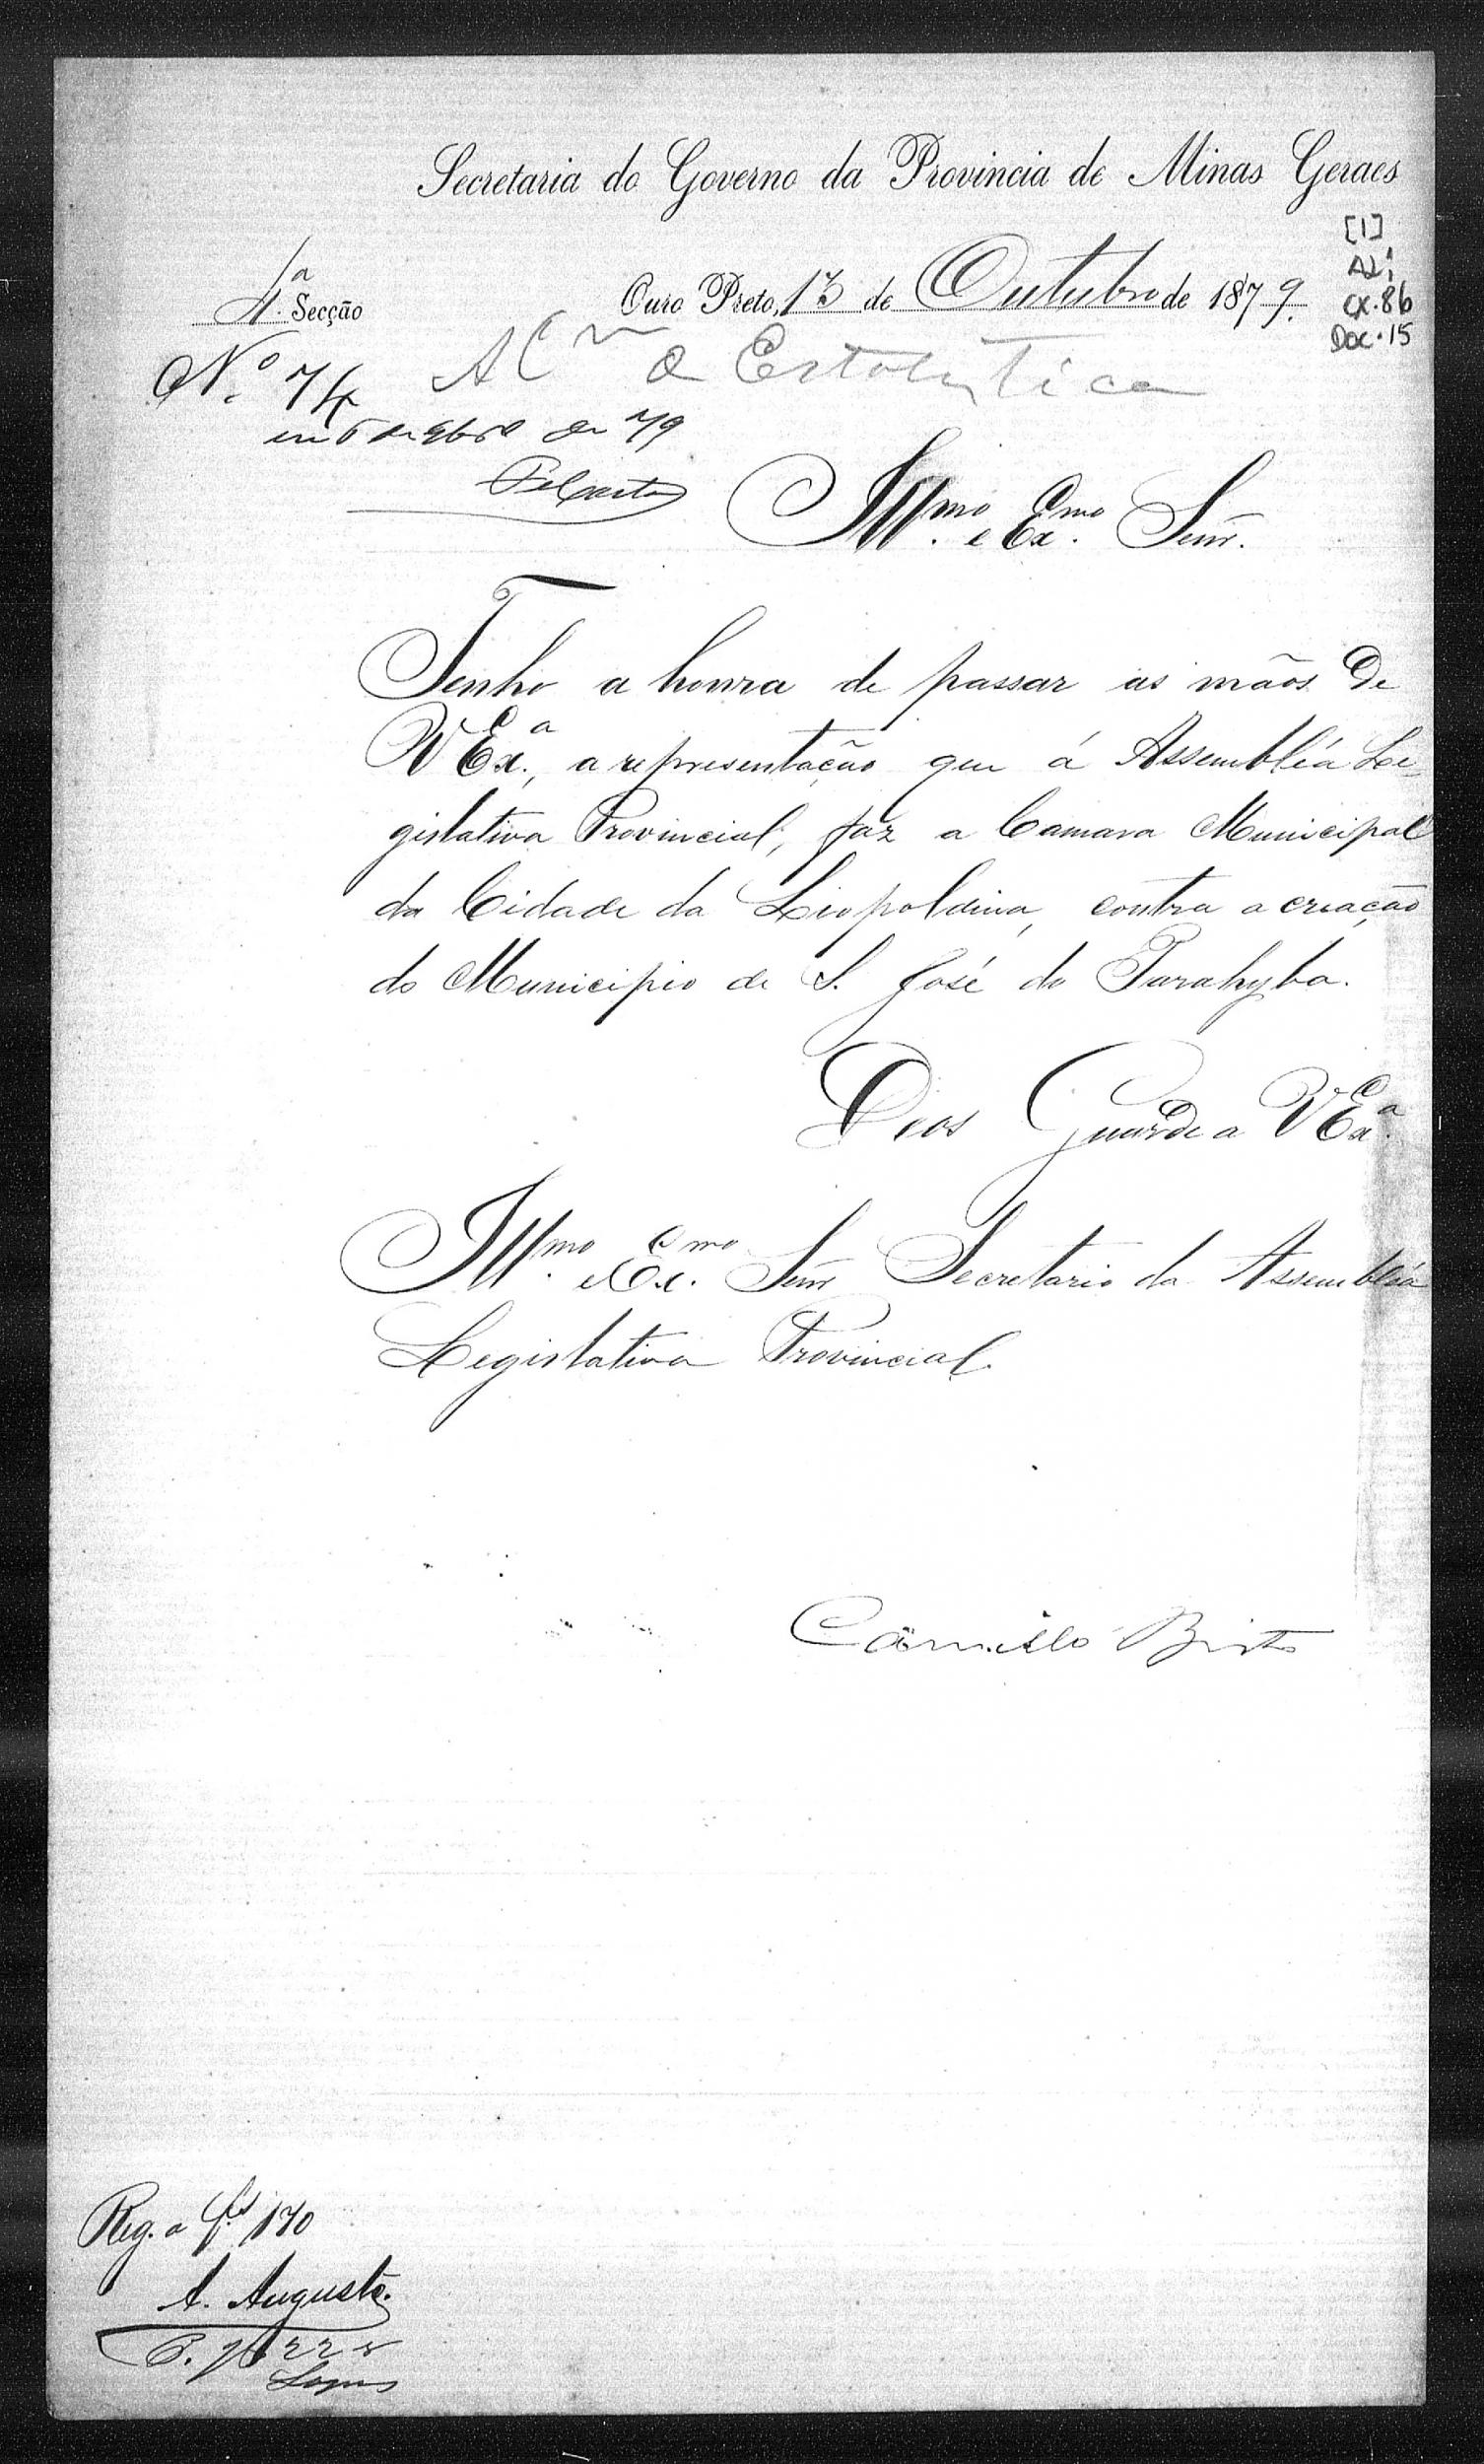 Secretaria do Governo da Provincia de Minas Geraes
[1]
AL1
CX.86
Doc.15
1ª Secção
Ouro Preto, 13 de Outubro de 1879.
Nº 74
A Cm de Estatistica
em 6 de de 79
Illmo. e Exmo. Senr.
Tenho a honra de passar ás mãos de
V Exª., a representação que á Assembléa Le-
gislativa Provincial, faz a Camara Municipal
da Cidade da Leopoldina, contra a creação
do Municipio de S. José do Parahyba.
Deos Guarde a V Exª.
Illmo. e Exmo. Senr Secretario da Assembléa
Legislativa Provincial.
Camillo Brito
Reg. a fls 170
A. Augusto.
Lopes